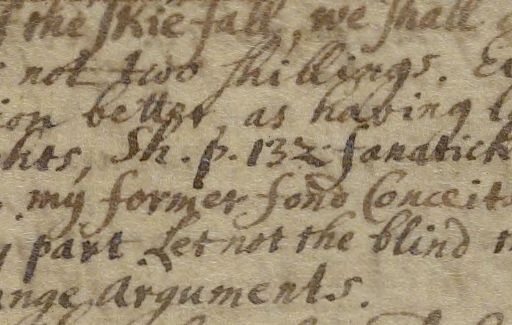 the skie fall, we shall
not two shillings.
ion better, as having
hts, Sh. p. 132 fanatick
my former fond Conceits
part Let not the blind
ange Arguments.